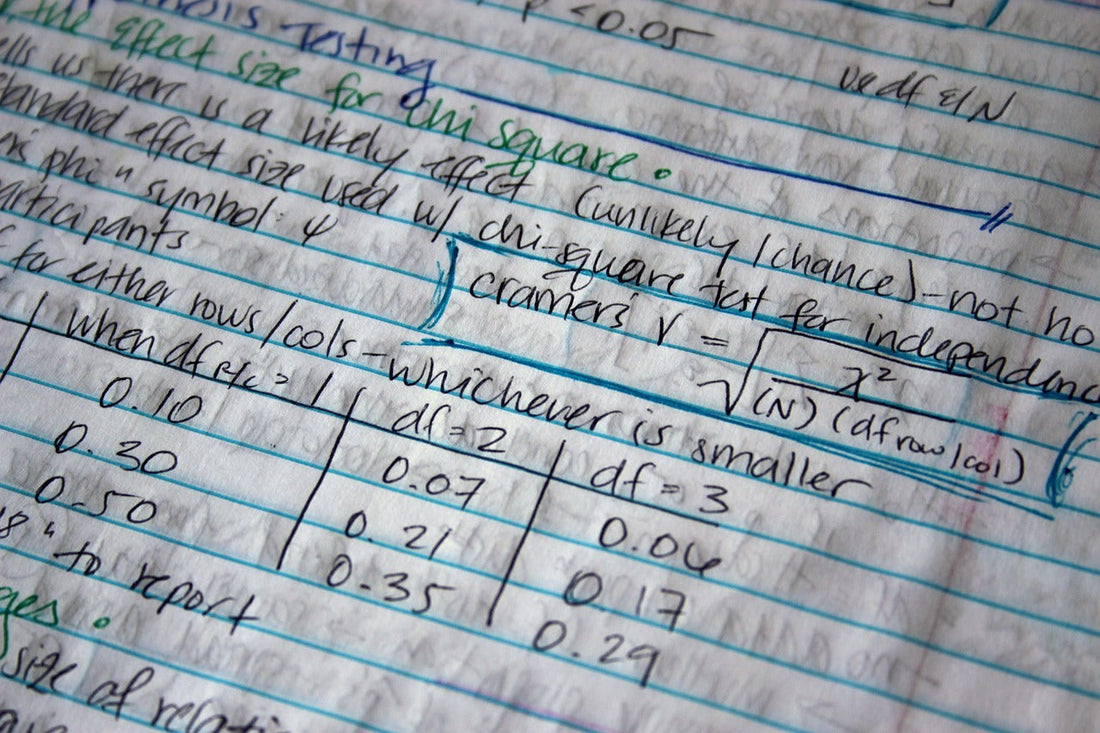 p < 0.05
Testing
use df & N
the effect size for chi square.
us there is a likely effect (unlikely/chance) - not ho
standard effect size used w/ chi-square test for independenc
phi" symbol: φ
cramers V = √ χ² / (N)(df row/col)
articipants
for either rows/cols - whichever is smaller
when df R/C = 1 df = 2 df = 3
0.10 0.07 0.06
0.30 0.21 0.17
0.50 0.35 0.29
" to report
size of relati